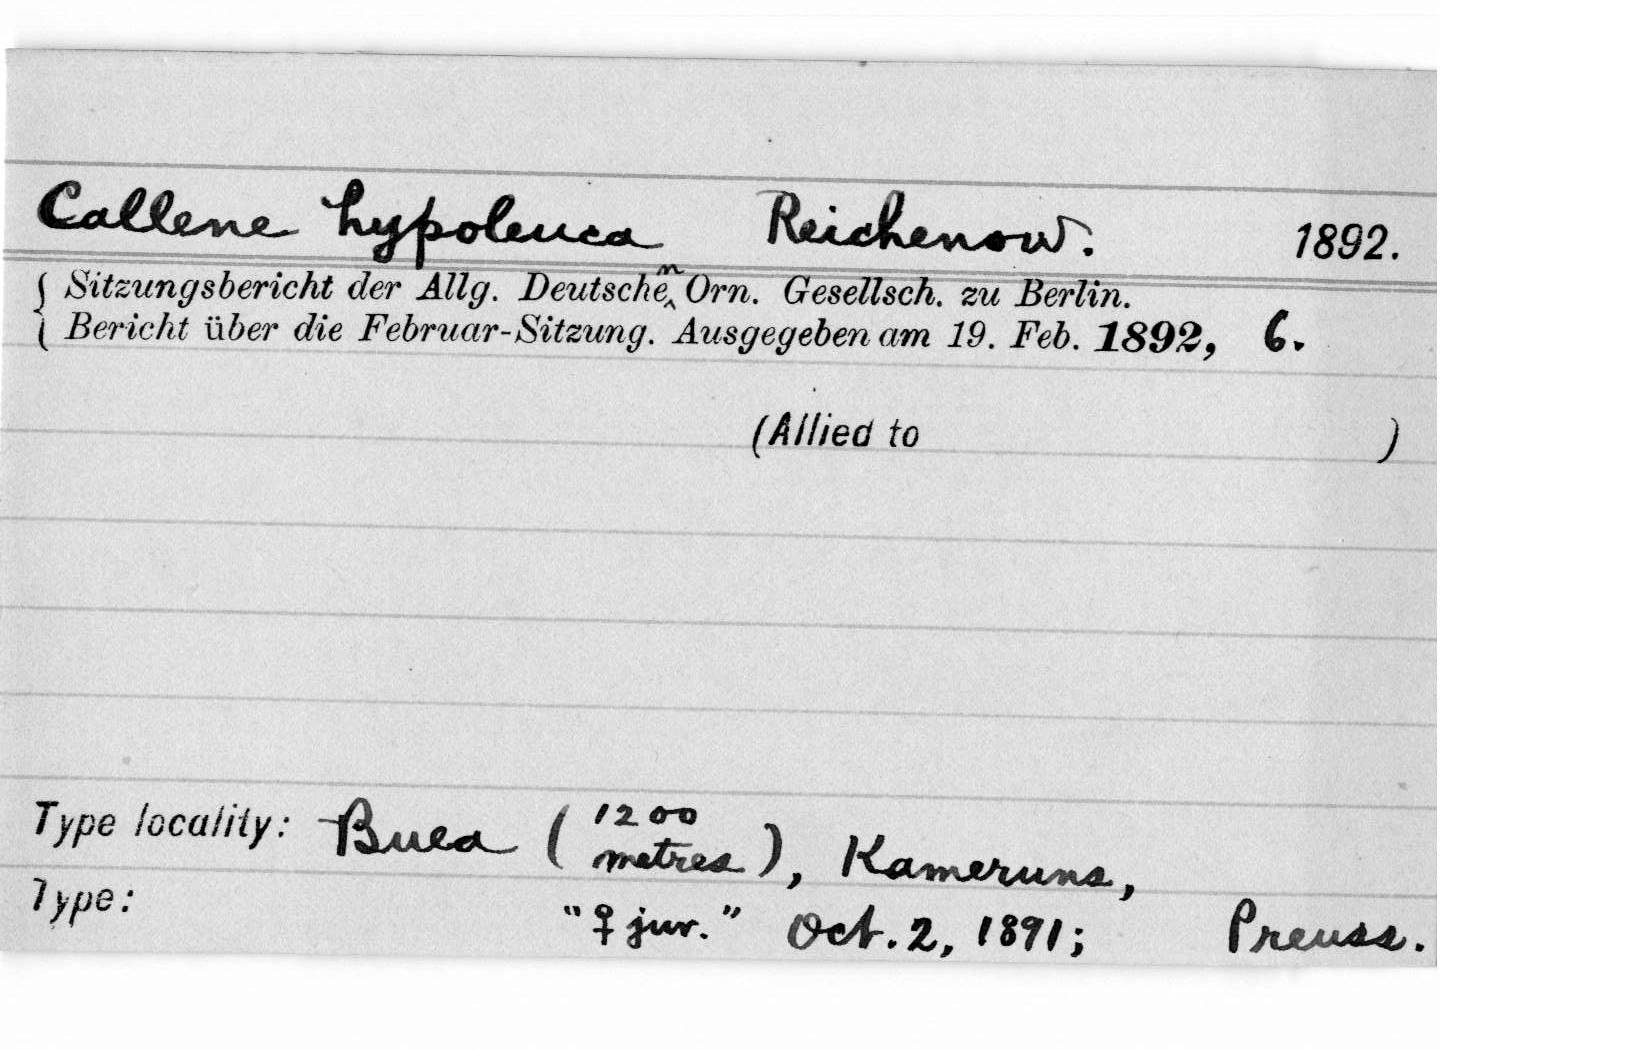 Callene hypoleuca Reichenow. 1892.
Sitzungsbericht der Allg. Deutschen Orn. Gesellsch. zu Berlin.
Bericht über die Februar-Sitzung. Ausgegeben am 19. Feb. 1892, 6.
(Allied to )
Type locality: Buea (1200 metres), Kameruns,
Type: "♀ juv." Oct. 2, 1891; Preuss.